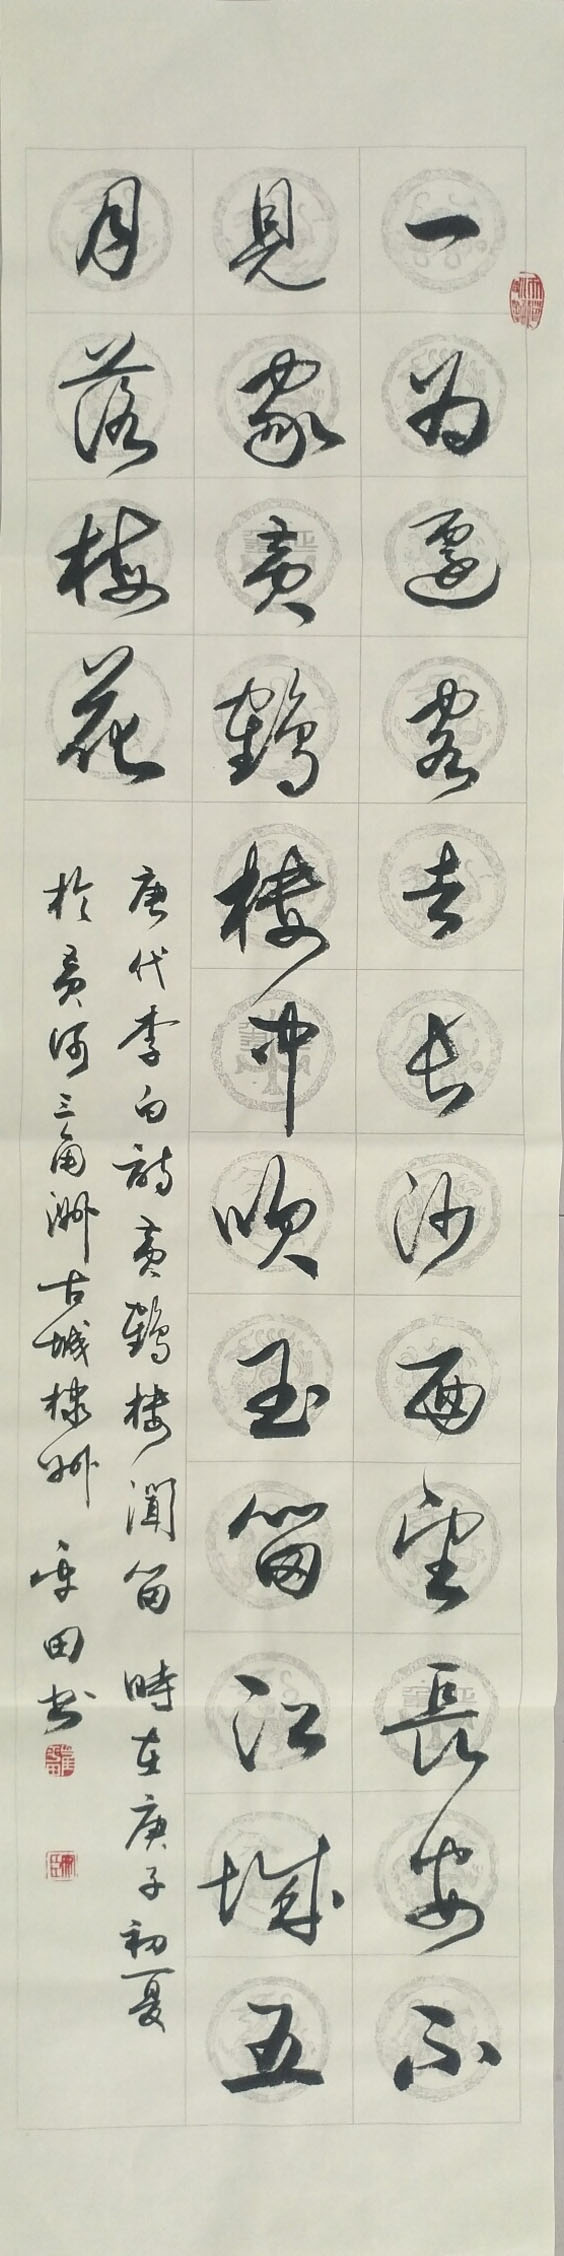 一为遷客去长沙西望長安不
見家黄鹤楼中吹玉笛江城五
月落梅花
唐代李白詩黄鹤楼闻笛 時在庚子初夏
於黄河三角洲古城棣州 田书